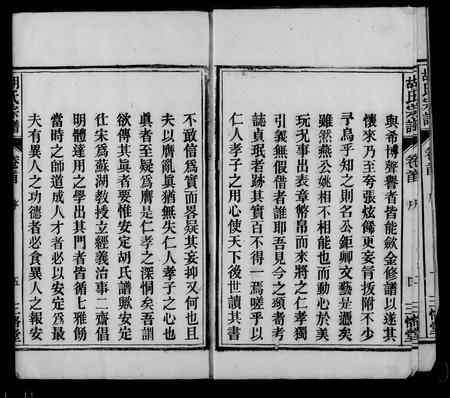 胡氏宗譜
卷首
序
四
與希博聲譽者皆能歛金修譜以遂其
懷來乃至夸張炫餙更妄肯扳附不少
子烏乎知之則名公鉅卿文藝是憑矣
雖然燕公姚相不相能也而動心於美
玩况事出表章幣帛而來將之仁孝獨
引義無假借者誰耶吾見今之頌者考
誌貞珉者跡其實百不得一焉嗟乎以
仁人孝子之用心使天下後世讀其書
不敢信爲實而畧疑其妄抑又何也且
夫以贋亂眞猶無失仁人孝子之心也
眞者至疑爲贋是仁孝之深恫矣吾謂
欲傳其眞者要惟安定胡氏譜歟安定
仕宋爲蘇湖教授立經義治事二齋倡
明體達用之學出其門者皆循七雅飭
當時之師道成人才者必以安定爲最
夫有異人之功德者必食異人之報安
胡氏宗譜
卷首
序
五